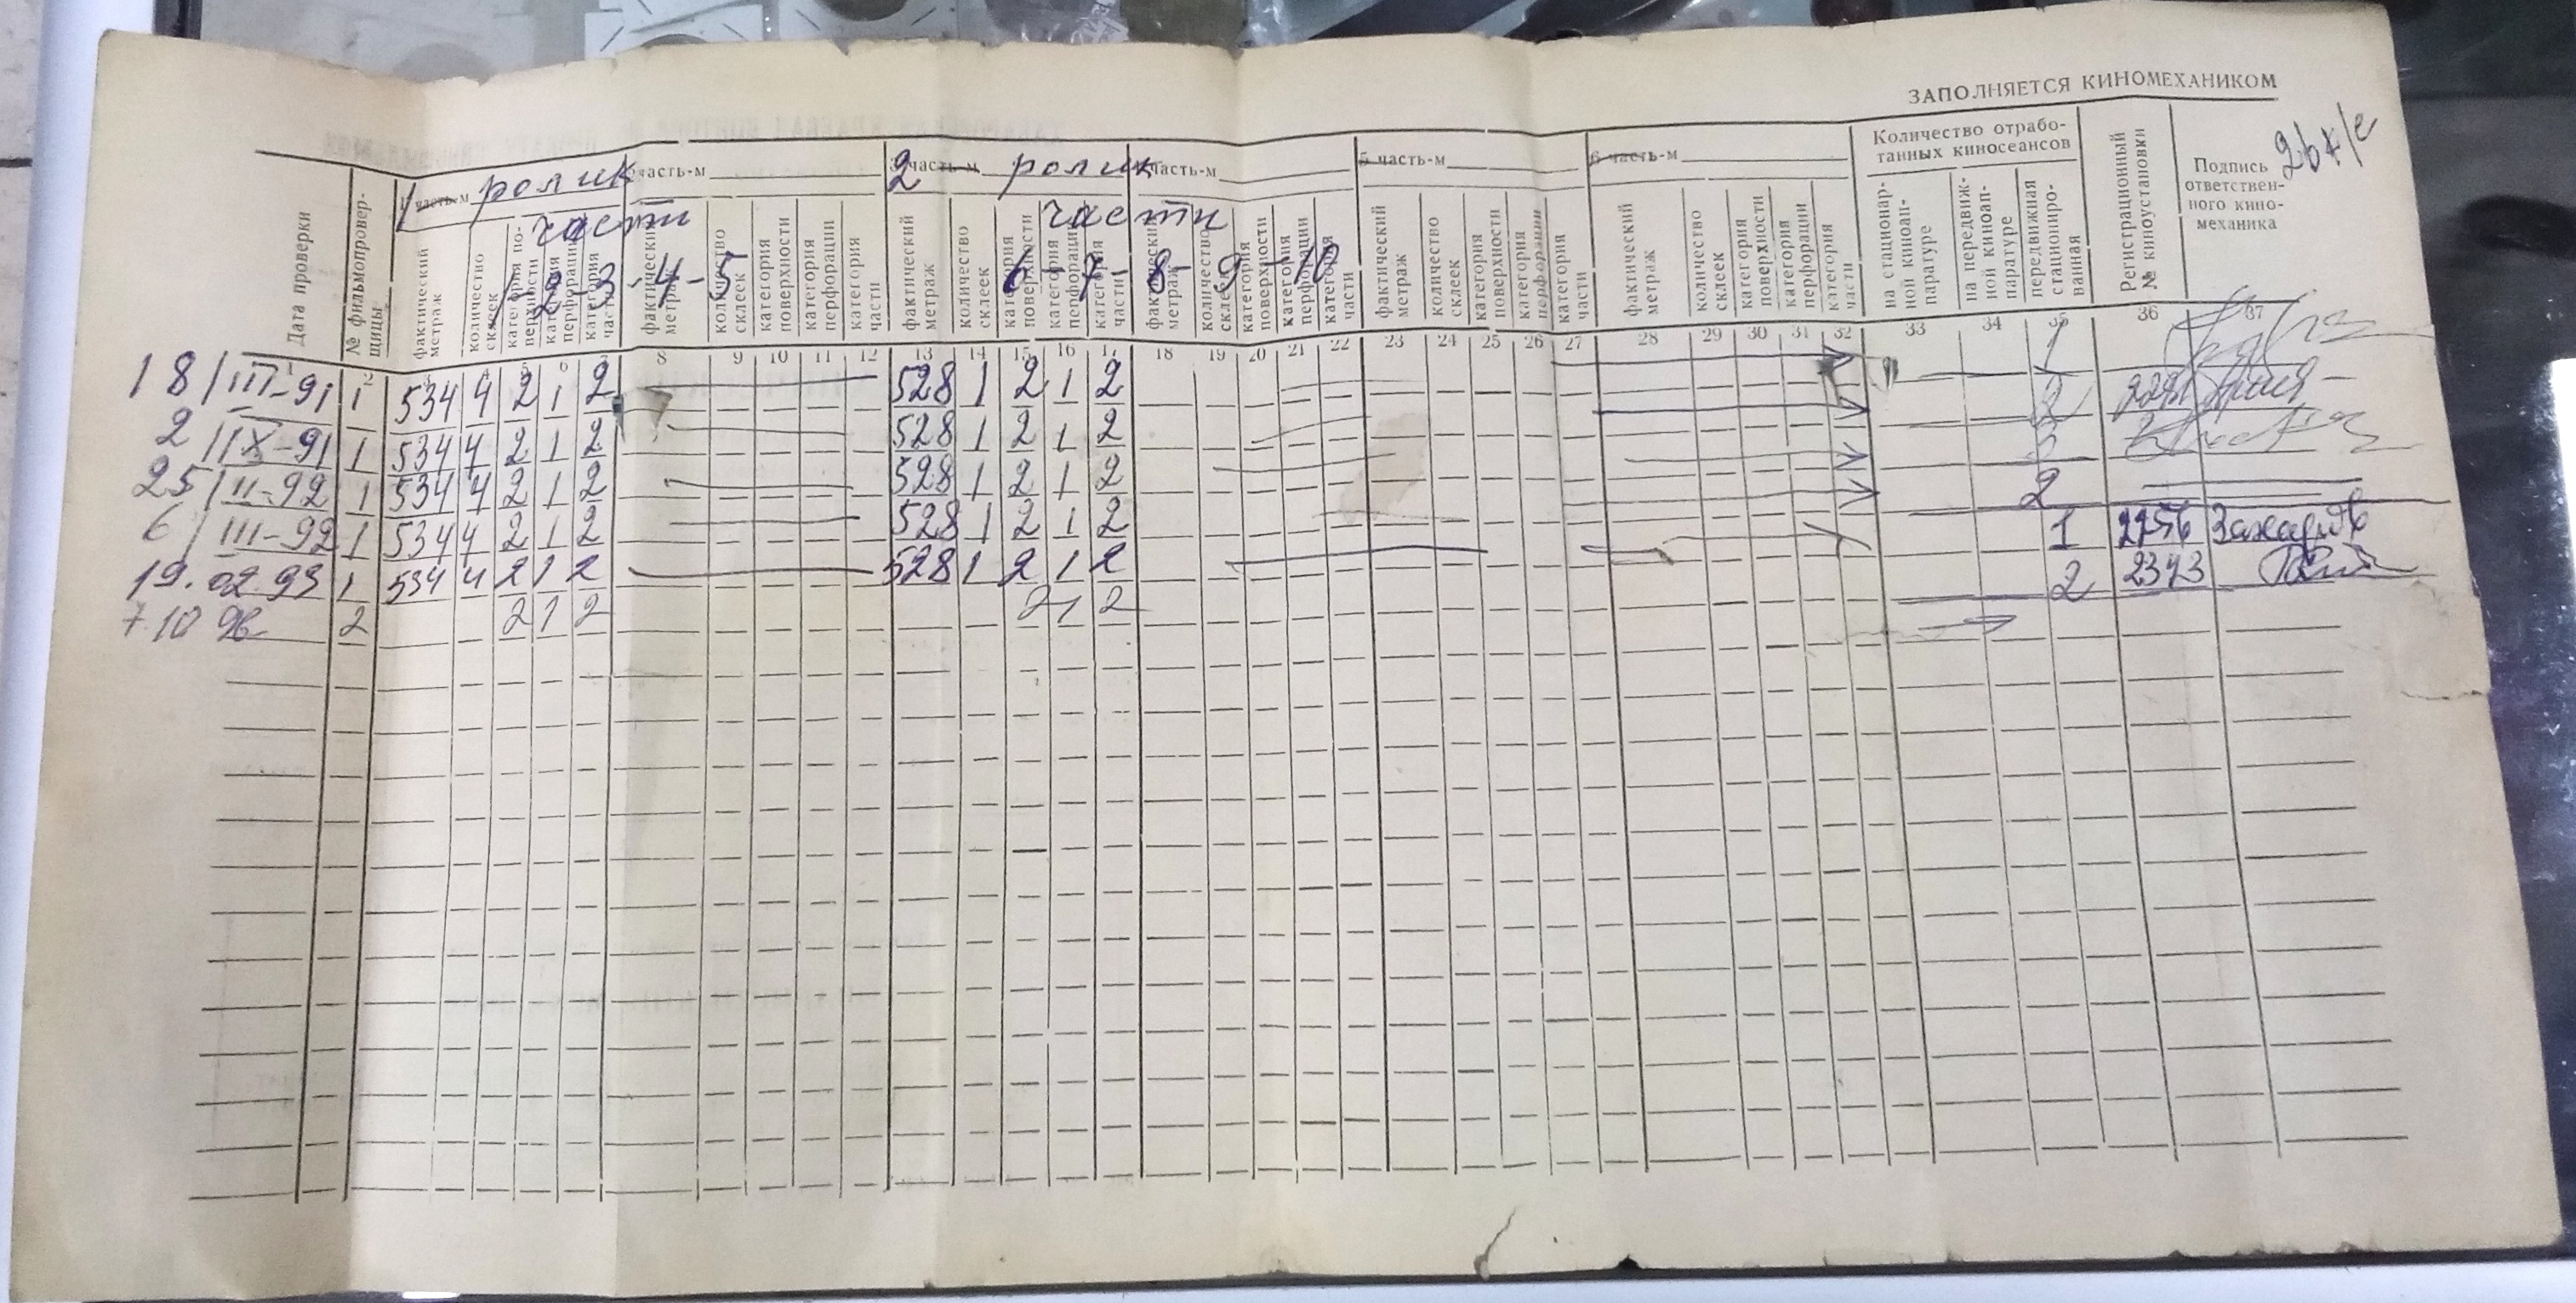 ЗАПОЛНЯЕТСЯ КИНОМЕХАНИКОМ
Дата проверки
№ фильмопровер-
щицы
1 часть-м ролик
части
1-2-3-4-5
фактический
метраж
количество
склеек
категория по-
верхности
категория
перфорации
категория
части
часть-м
фактический
метраж
количество
склеек
категория
поверхности
категория
перфорации
категория
части
2 часть-м ролик
части
6-7-8-9 10
фактический
метраж
количество
склеек
категория
поверхности
категория
перфорации
категория
части
часть-м
фактический
метраж
количество
склеек
категория
поверхности
категория
перфорации
категория
части
5 часть-м
фактический
метраж
количество
склеек
категория
поверхности
категория
перфорации
категория
части
6 часть-м
фактический
метраж
количество
склеек
категория
поверхности
категория
перфорации
категория
части
Количество отрабо-
танных киносеансов
на стационар-
ной киноап-
паратуре
на передвиж-
ной киноап-
паратуре
передвижная
стациониро-
ванная
Регистрационный
№ киноустановки
Подпись
ответствен-
ного кино-
механика
2 6 6 7 8 9 10 11 12 13 14 15 16 17 18 19 20 21 22 23 24 25 26 27 28 29 30 31 32 33 34 35 36 37
18/III-91 1 534 4 2 1 2 528 1 2 1 2 1
2/IX-91 1 534 4 2 1 2 528 1 2 1 2 2
25/II-92 1 534 4 2 1 2 528 1 2 1 2 3
6/III-92 1 534 4 2 1 2 528 1 2 1 2 2
19.02.93 1 534 4 2 1 2 528 1 2 1 2 1 2256 Захаров
7.10 2 2 1 2 2 1 2 2 2343